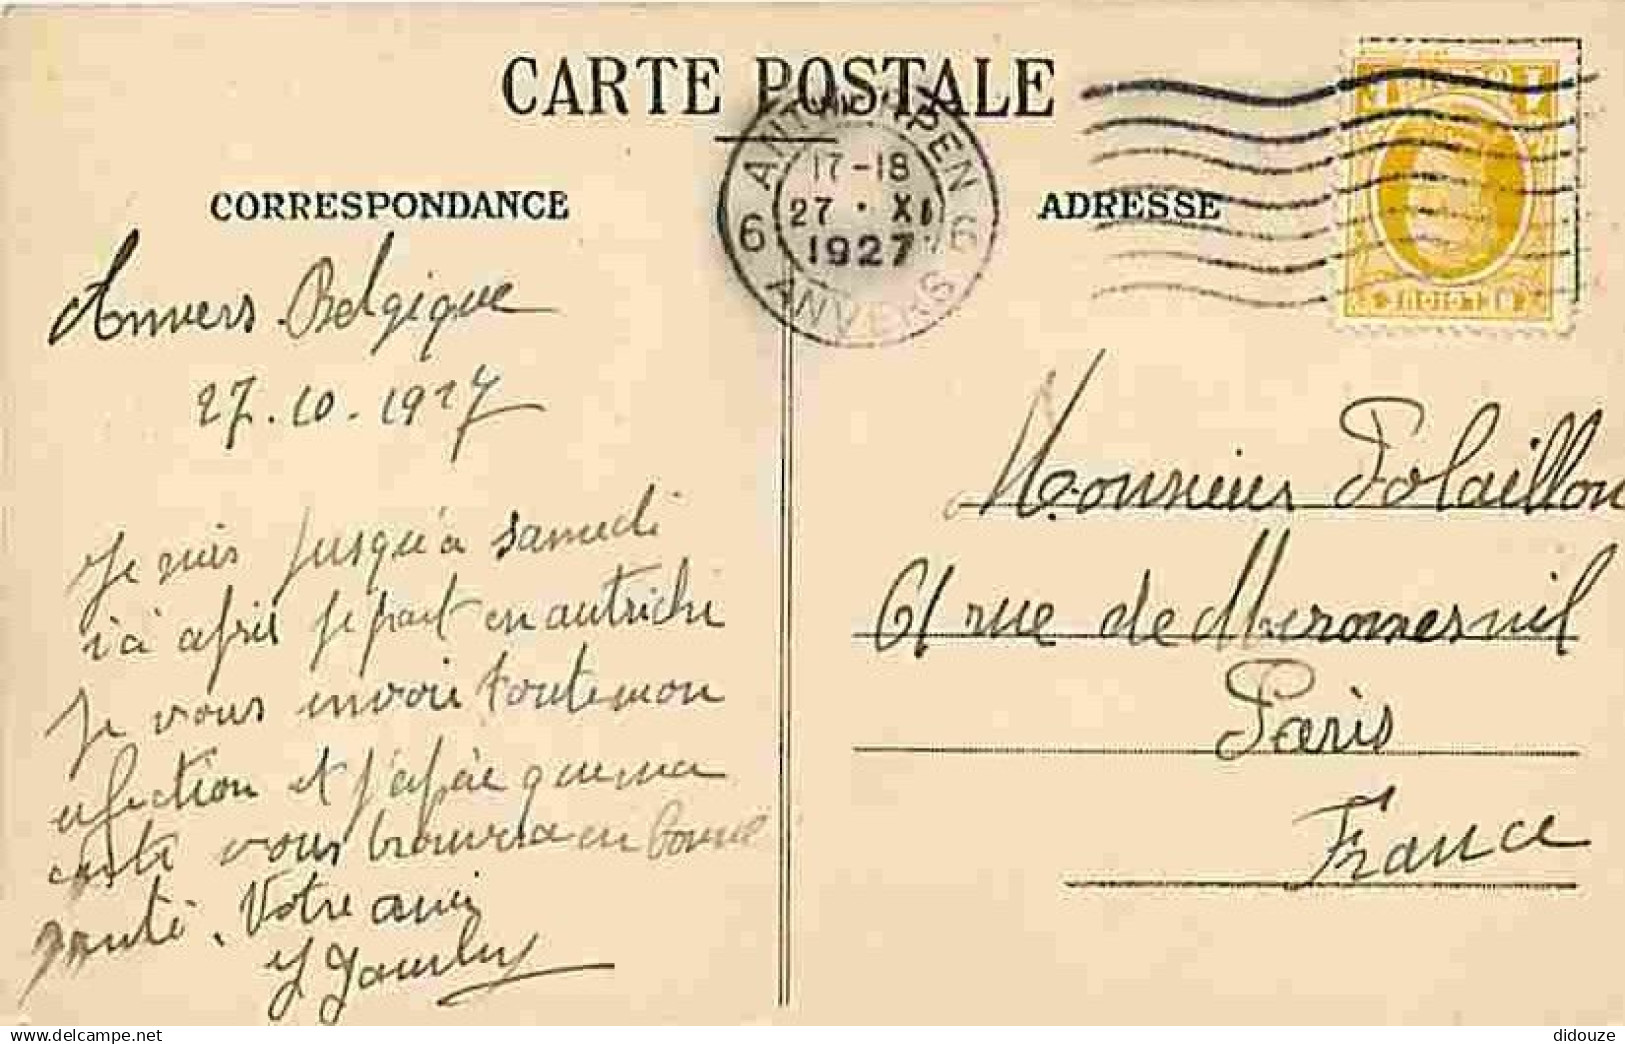 CARTE POSTALE
CORRESPONDANCE
ADRESSE
ANTWERPEN
17-18
27 · XI
1927
6 6
ANVERS
Anvers Belgique
27.10.1927
Je suis jusqu'à samedi
ici après je part en autriche
Je vous envoie toute mon
afection et j'espère que ma
carte vous trouvera en bonne
santé. Votre ami
Monsieur Polaillon
61 rue de Miromesnil
Paris
France
didouze